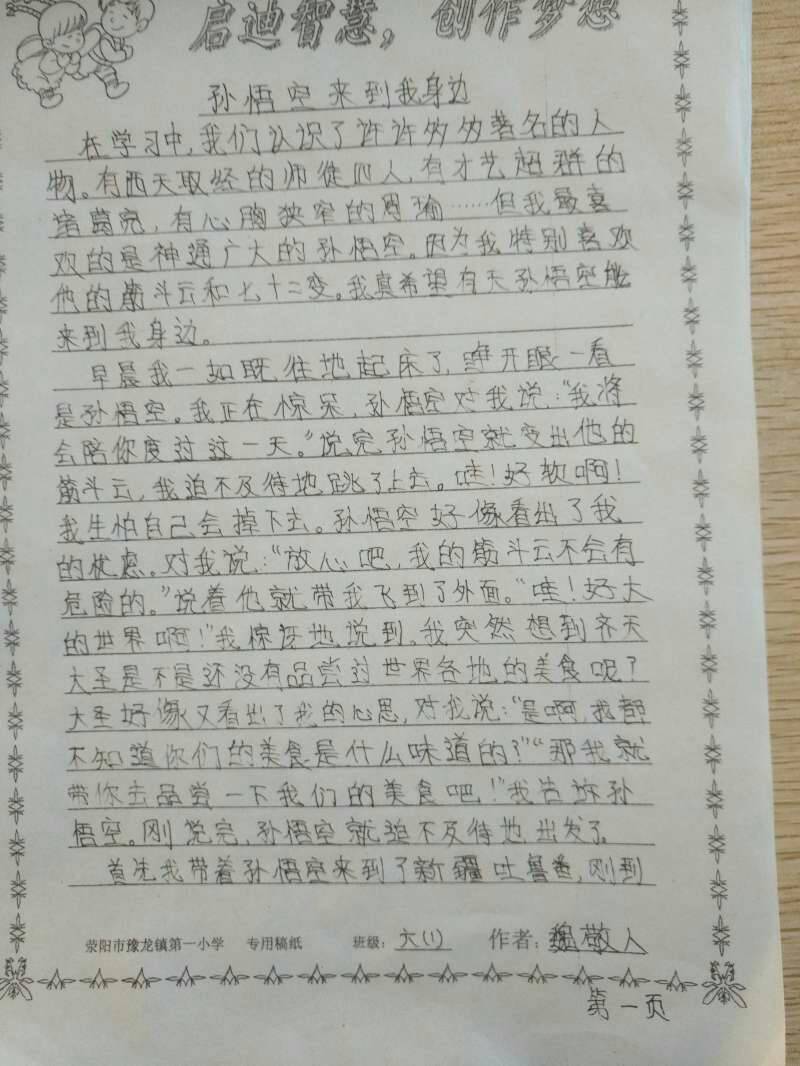 启迪智慧，创作梦想
孙悟空来到我身边
在学习中，我们认识了许许多多著名的人
物。有西天取经的师徒四人，有才艺超群的
诸葛亮，有心胸狭窄的周瑜……但我最喜
欢的是神通广大的孙悟空。因为我特别喜欢
他的筋斗云和七十二变。我真希望有天孙悟空能
来到我身边。
早晨我一如既往地起床了，睁开眼一看
是孙悟空。我正在惊呆，孙悟空对我说：“我将
会陪你度过过一天。”说完孙悟空就变出他的
筋斗云，我迫不及待地跳了上去。哇！好软啊！
我生怕自己会掉下去。孙悟空好像看出了我
的忧虑。对我说：“放心吧，我的筋斗云不会有
危险的。”说着他就带我飞到了外面。“哇！好大
的世界啊！”我惊讶地说到。我突然想到齐天
大圣是不是还没有品尝过世界各地的美食呢？
大圣好像又看出了我的心思，对我说：“是啊，我都
不知道你们的美食是什么味道的？”“那我就
带你去品尝一下我们的美食吧！”我告诉孙
悟空。刚说完，孙悟空就迫不及待地出发了。
首先我带着孙悟空来到了新疆吐鲁番，刚到
荥阳市豫龙镇第一小学 专用稿纸 班级：六(1) 作者：魏敬人
第一页